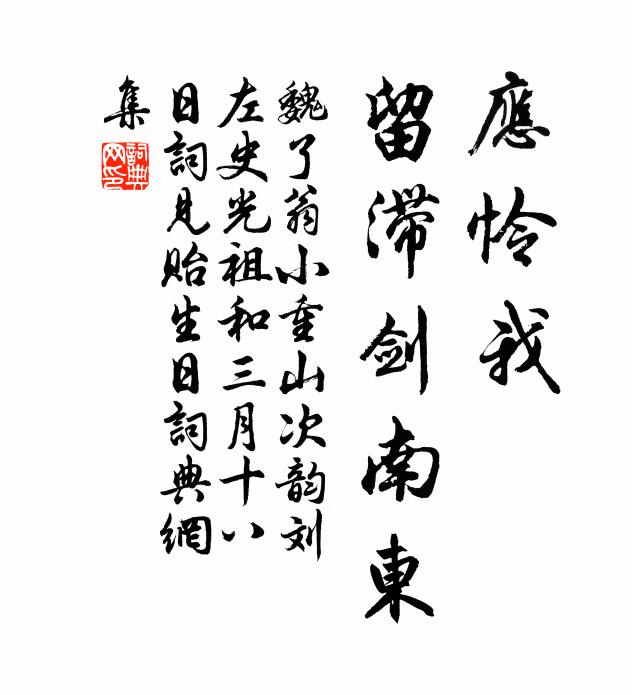 應怜我
留滯剑南東
魏了翁小重山次韵刘
左史光祖和三月十八
日詞見貽生日詞典網
集
詞典
网印